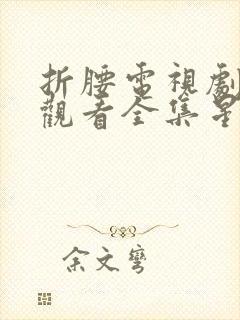 折腰電視劇
觀看全集星
余文彎